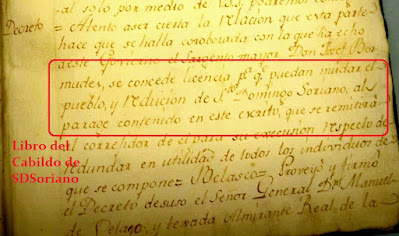 al solo por medio de
Decreto
= Atento aser cierta la relacion que esta parte
hace que se halla coroborada con la que ha echo
aeste Govierno el Sargento mayor Don Josef Ber
mudes, se concede licencia pª qº puedan mudar el
pueblo, y reducion de Sto Domingo Soriano, al
parage contenido en este escrito, que se remitirá
al corregidor de el para su execusion respecto de
redundar en utilidad de todos los individuos de
que se compone= Belasco= Proveyo y firmó
el Decreto desuso el Señor General Dn Manuel
de Velazco, y texada Almirante Real de la
Libro del
Cabildo de
SDSoriano